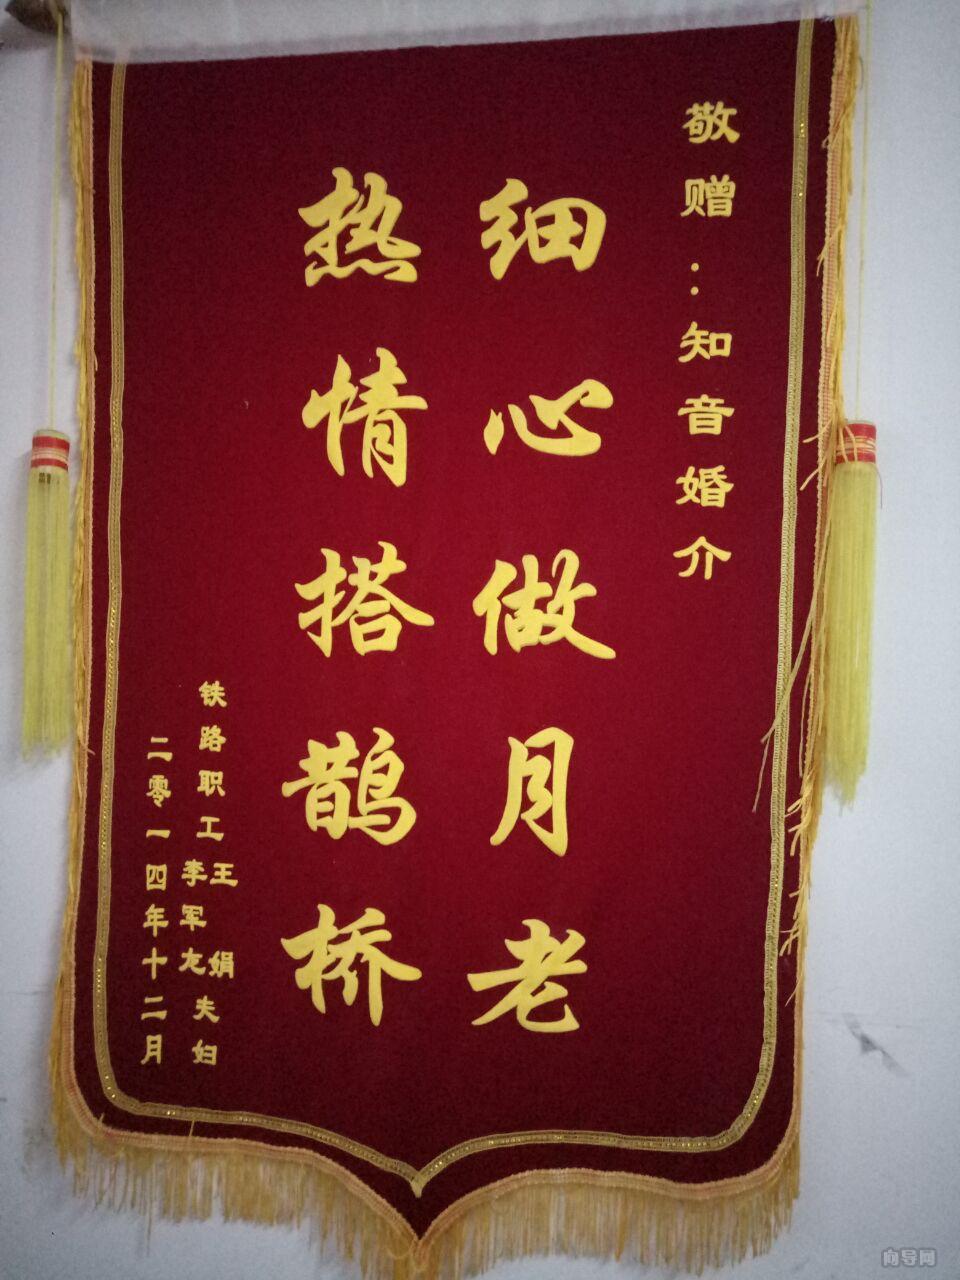 敬赠：知音婚介
细心做月老
热情搭鹊桥
铁路职工王娟李军龙夫妇
二零一四年十二月
向导网